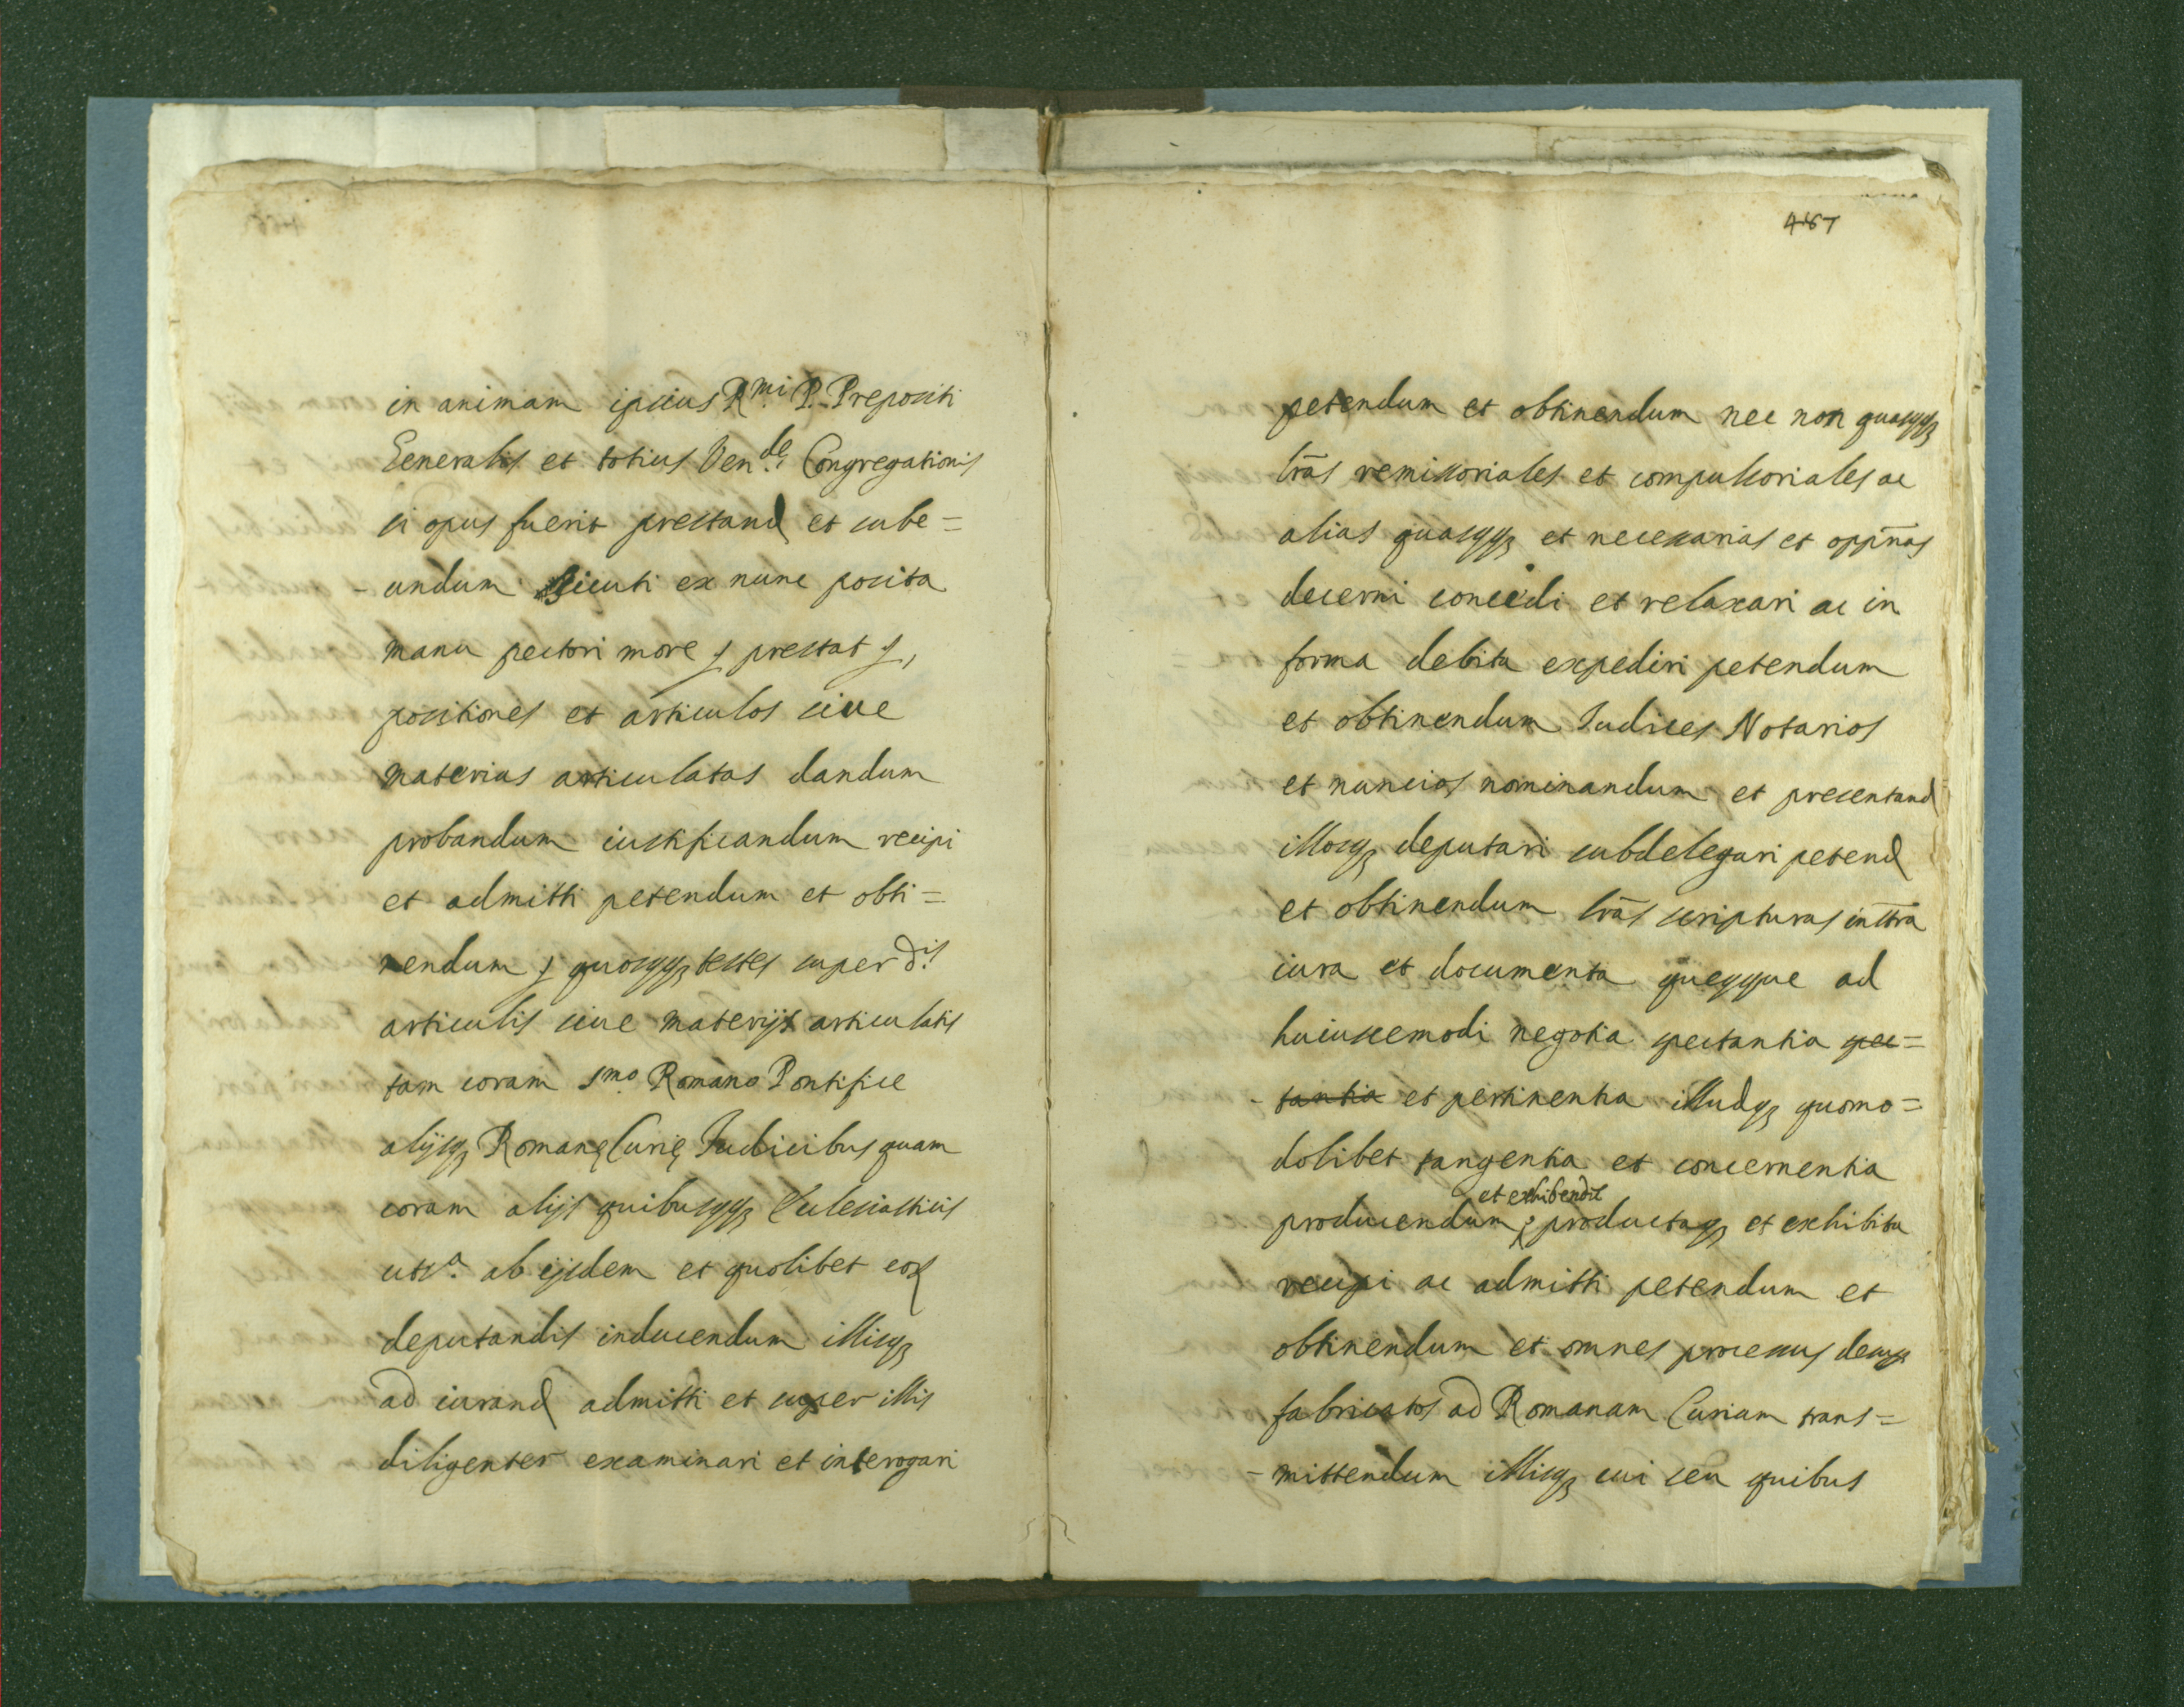 in animam ipsius R.mi P. Prepositi
Generalis et totius Ven.de Congregationis
si opus fuerit prestand et sube=
-undum sicuti ex nunc posita
manu pectori more  prestat 
positiones et articulos sive
materias articulatas dandum
probandum iustificandum recipi
et admitti petendum et obti=
nendum  quoscqz testes super d.is
articulis sive materijs articulatis
tam coram S.mo Romano Pontifice
alijsqz Romanę Curię Iudicibus quam
coram alijs quibuscqz Ecclesiasticis
uts.a ab ijsdem et quolibet eor
deputandis inducendum illisqz
ad iurand admitti et super illis
diligenter examinari et interogari
467
petendum et obtinendum nec non quascqz
lrās remissoriales et compulsoriales ac
alias quascqz et necessarias et oppn̄as
decerni concedi et relaxari ac in
forma debita expediri petendum
et obtinendum Iudices Notarios
et nuncios nominandum et presentand
illosqz deputari subdelegari petend
et obtinendum lrās scripturas instra
iura et documenta quecque ad
huiuscemodi negotia spectantia spec=
-tantia et pertinentia illudqz quomo=
dolibet tangentia et concernentia
et exhibendū
producendum, productaqz et exhibita
recipi ac admitti petendum et
obtinendum et omnes processus
fabricatos ad Romanam Curiam trans=
-mittendum illisqz cui seu quibus